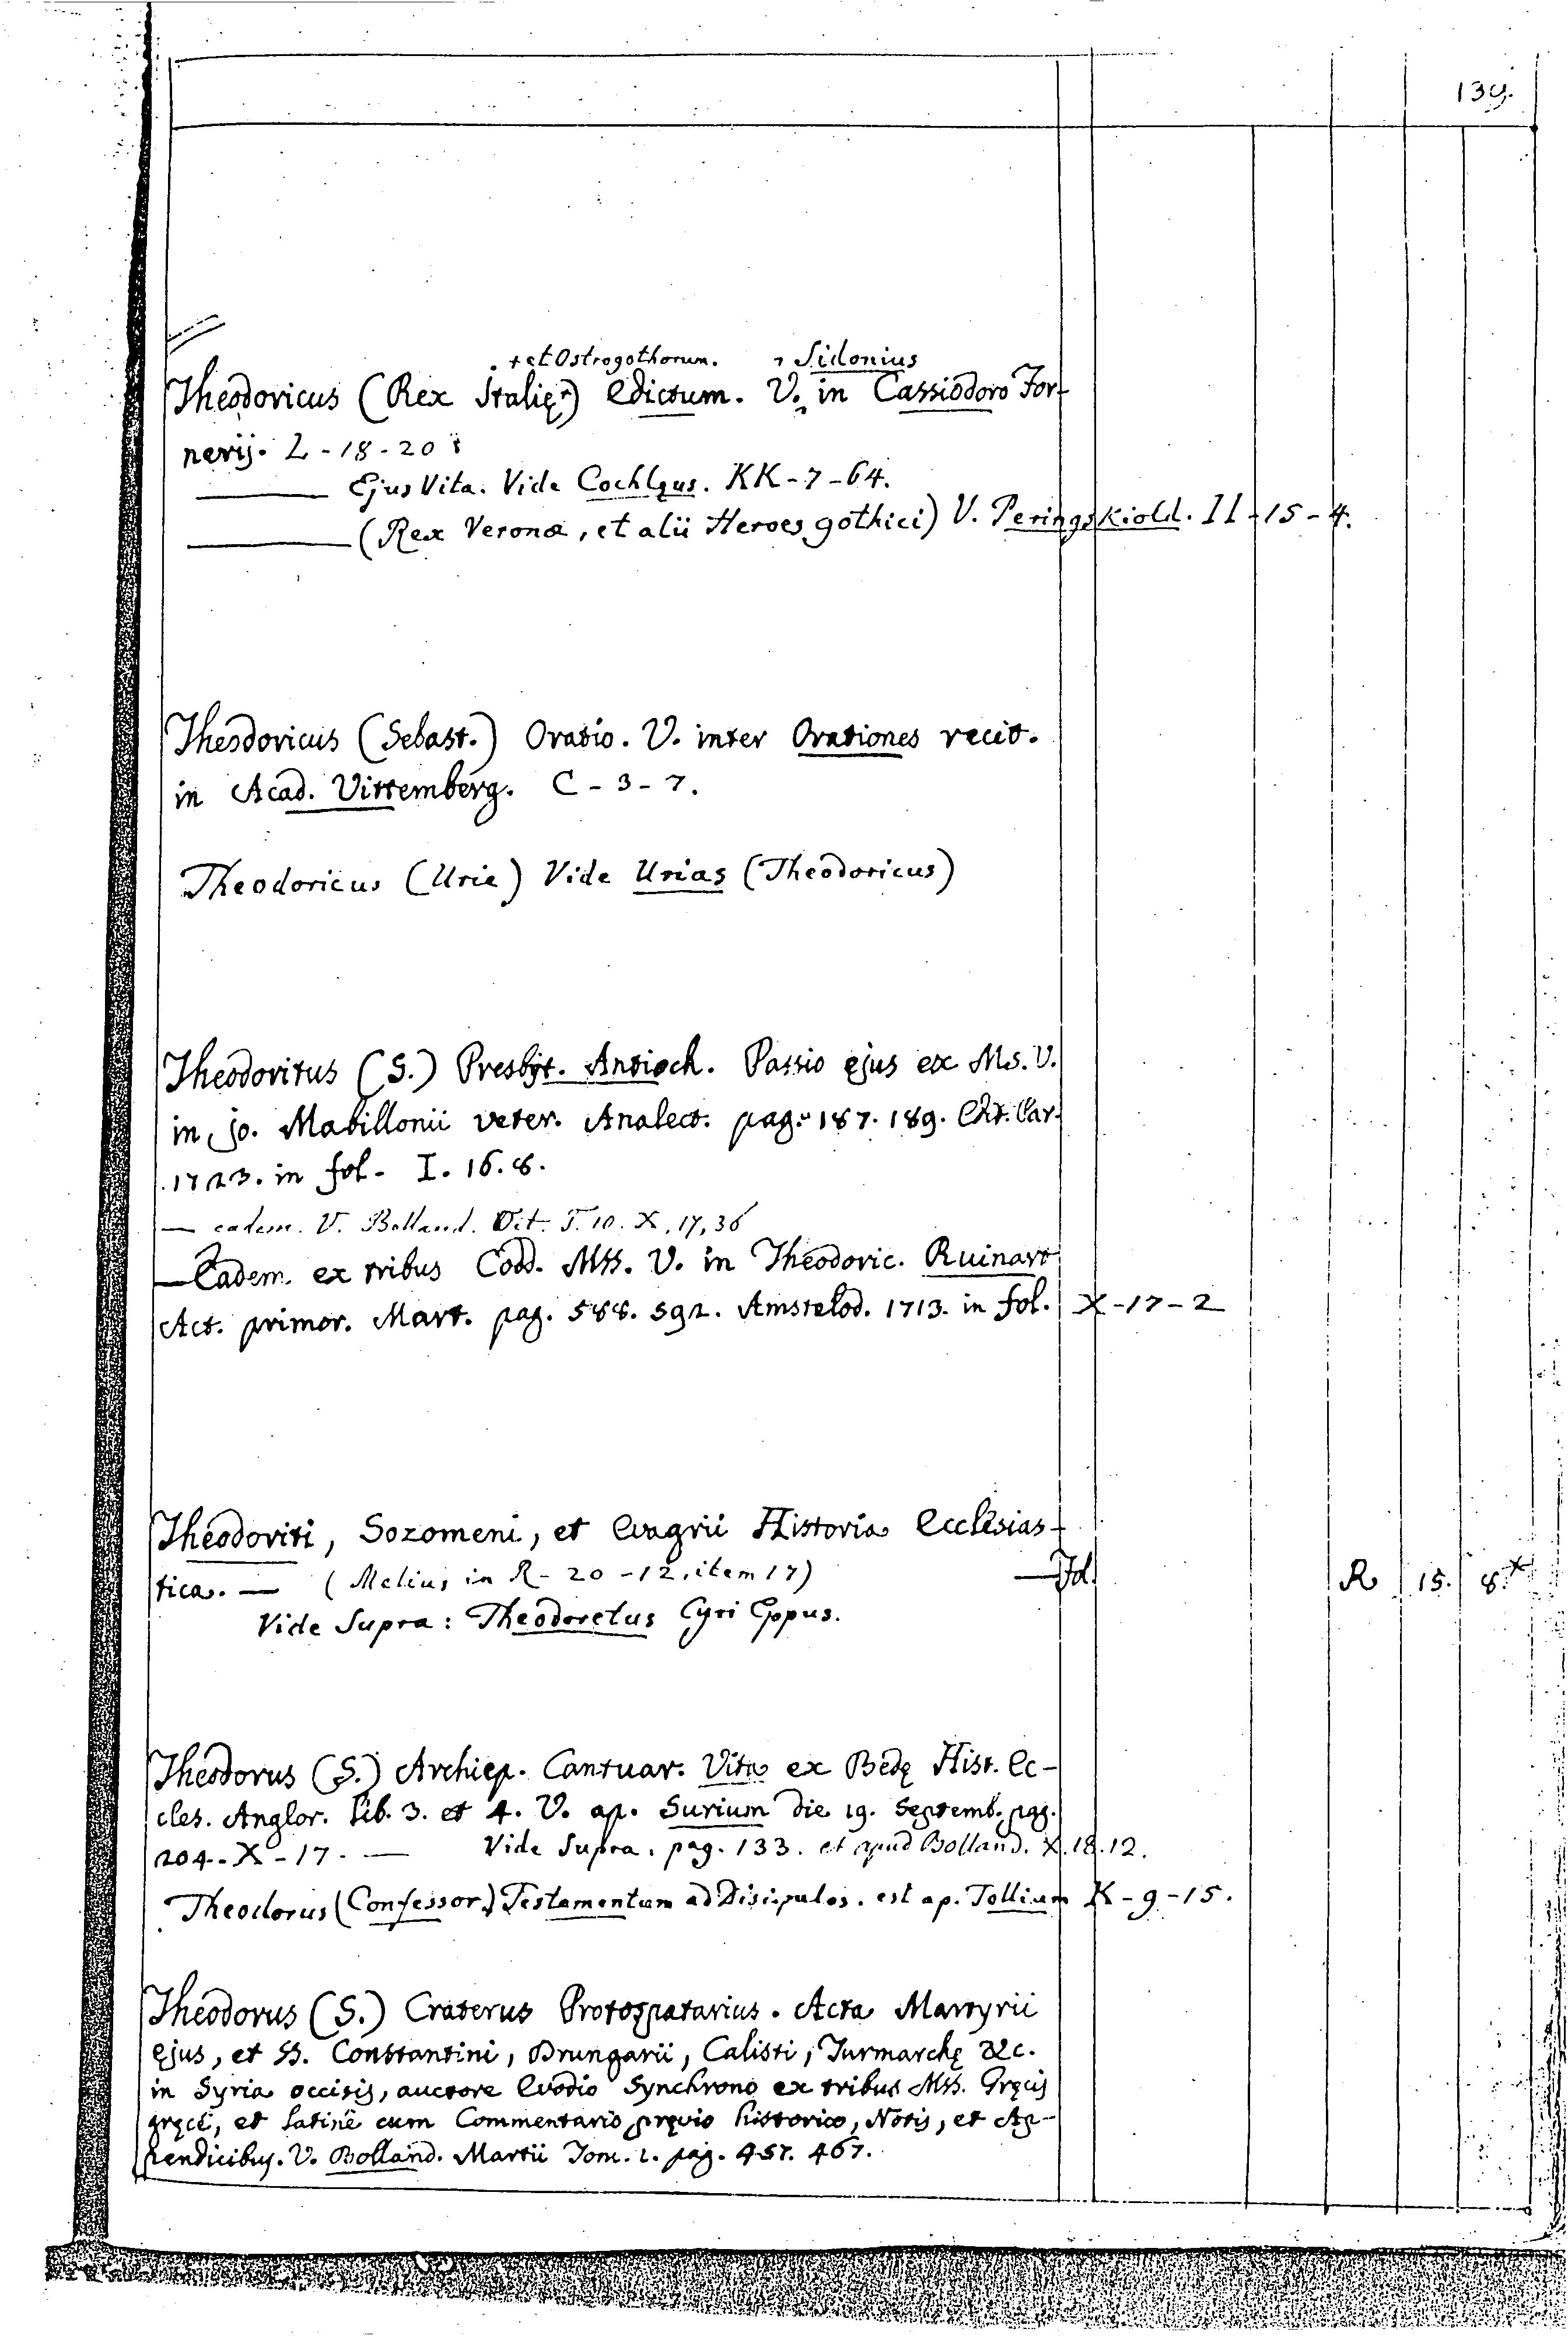 139.
+ et Ostrogothorum. , Sidonius
Theodoricus (Rex Italię +) Edictum. V. in Cassiodoro For-
nerij. L - 18 - 20
——— Ejus Vita. Vide Cochlęus. KK - 7 - 64.
——— (Rex Veronæ, et alii Heroes gothici) V. Peringskiold. II - 15 - 4.
Theodoricus (Sebast.) Oratio. V. inter Orationes recit.
in Acad. Vittemberg. C - 3 - 7.
Theodoricus (Urie) Vide Urias (Theodoricus)
Theodoritus (S.) Presbyt. Antioch. Passio ejus ex Ms. V.
in Jo. Mabillonii veter. Analect. pag. 187. 189. Edit. Par.
1723. in fol. I. 16. 8.
— eadem. V. Bolland. T. 10. X, 17, 36
— Eadem ex tribus Codd. Mss. V. in Theodoric. Ruinart
Act. primor. Mart. pag. 588. 592. Amstelod. 1713. in fol. X - 17 - 2
Theodoriti, Sozomeni, et Evagrii Historia Ecclesias-
tica. — (Melius in R - 20 - 12, item 17) — Fol. R 15. 8. x
Vide Supra: Theodoretus Cyri Eppus.
Theodorus (S.) Archiep. Cantuar. Vita ex Bedę Hist. Ec-
cles. Anglor. lib. 3. et 4. V. ap. Surium die 19. Septemb. pag.
204. X - 17. — Vide Supra. pag. 133. et apud Bolland. X. 18. 12.
Theodorus (Confessor.) Testamentum ad Discipulos. est ap. Tollium K - 9 - 15.
Theodorus (S.) Craterus Protospatarius. Acta Martyrii
ejus, et SS. Constantini, Drungarii, Calisti, Turmarchę &c.
in Syria occisis, auctore Evodio Synchrono ex tribus Mss. Gręcis
gręcè, et latinè cum Commentario pręvio historico, Notis, et Ap-
pendicibus. V. Bolland. Martii Tom. 1. pag. 457. 467.